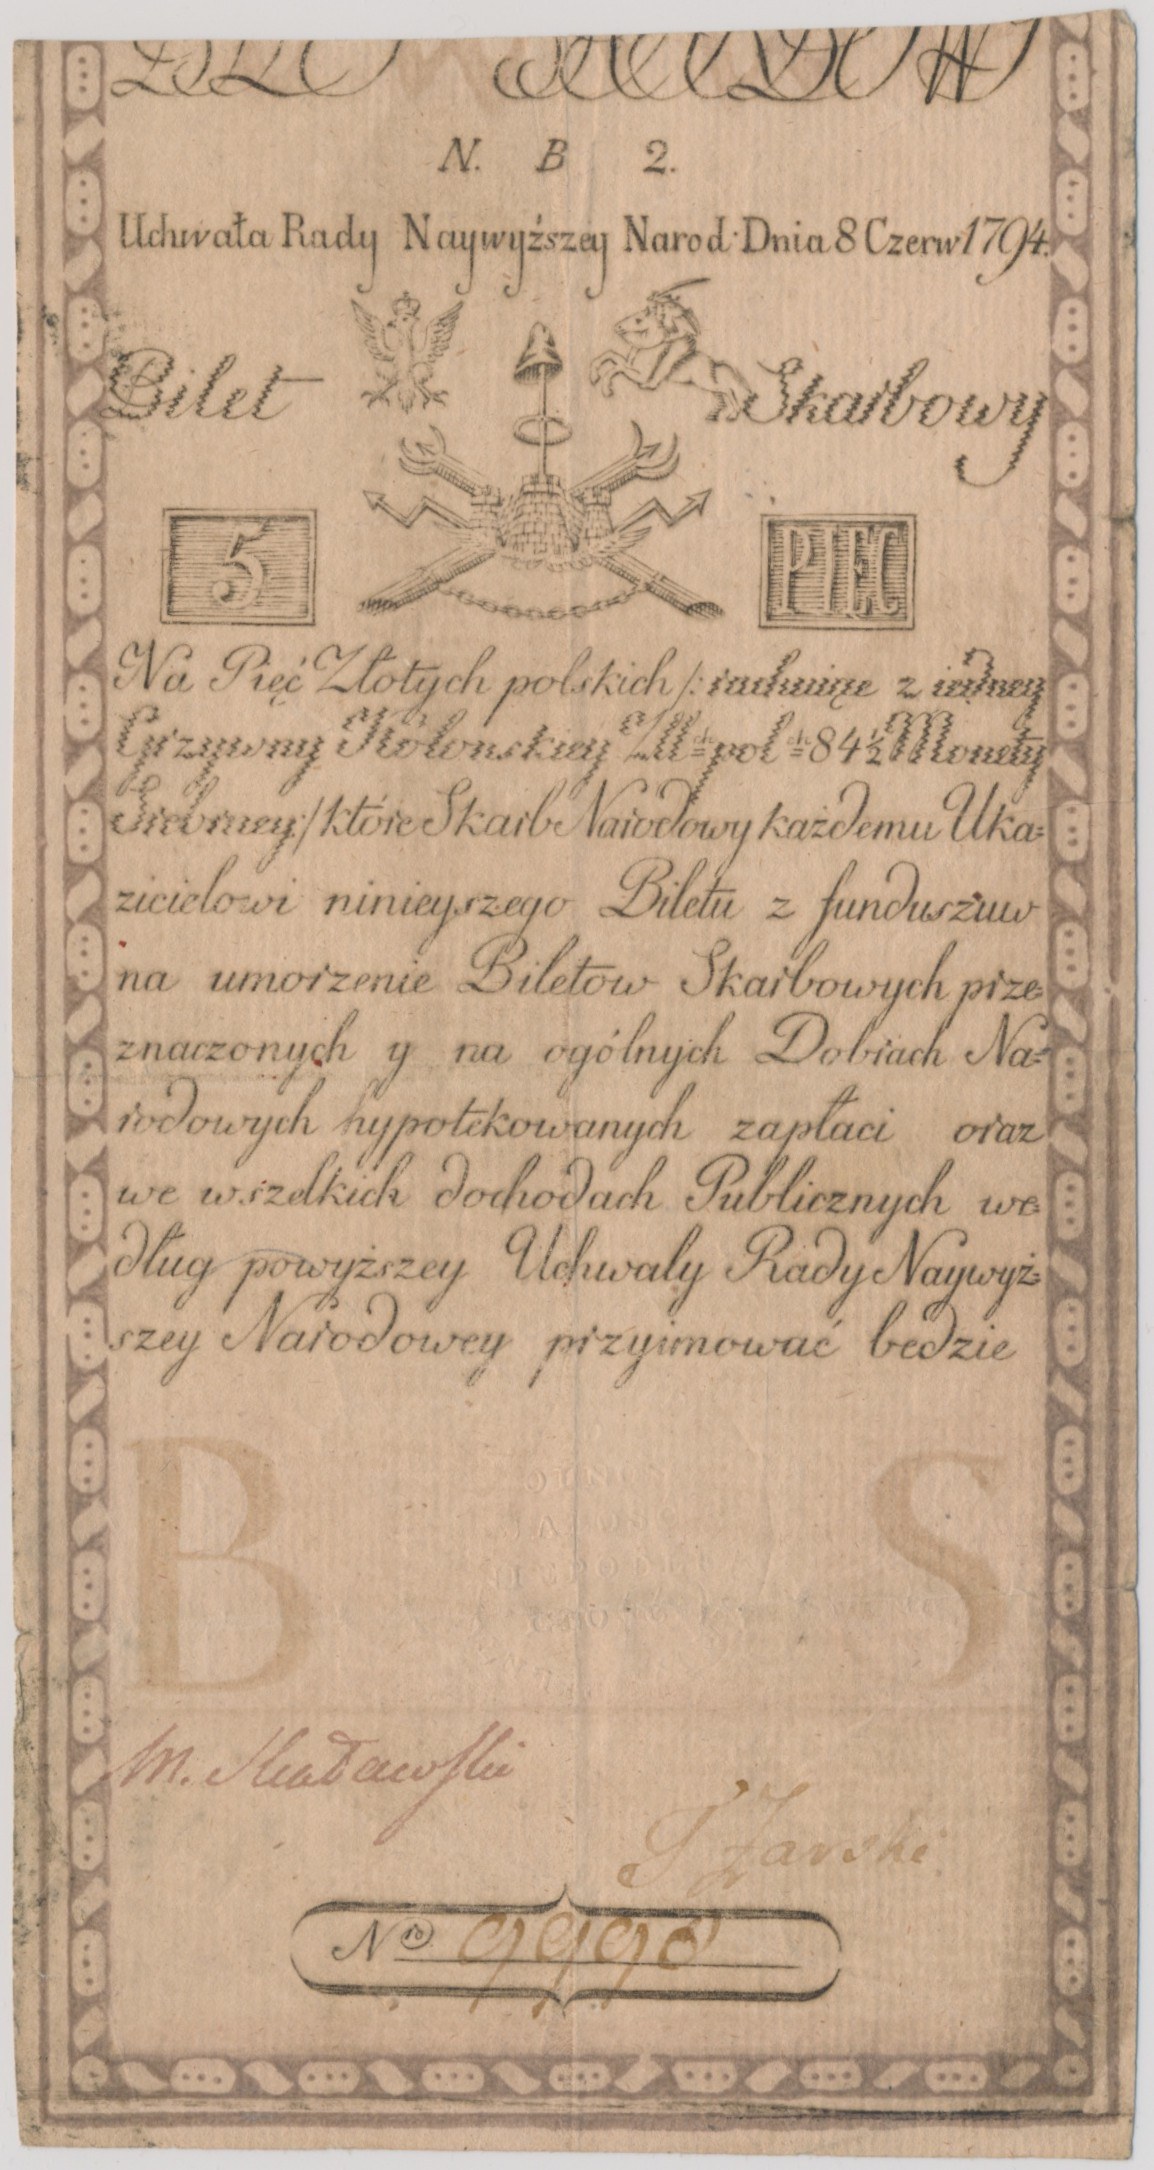 N. B 2.
Uchwała Rady Naywyższey Narod: Dnia 8 Czerw 1794.
Bilet Skarbowy
5 PIĘĆ
Na Pięć Złotych polskich /: rachuiąc z iedney
Grzywny Kolonskiey Zll: pol: 84 1/2 Monety
Srebrney :/ które Skarb Narodowy każdemu Uka=
zicielowi ninieyszego Biletu z funduszuw
na umorzenie Biletow Skarbowych prze=
znaczonych y na ogólnych Dobrach Na=
rodowych hypotekowanych zapłaci oraz
we wszelkich dochodach Publicznych we=
dług powyższey Uchwaly Rady Naywyż=
szey Narodowey przyimować bedzie
B S
M.
J Zarski
No 9990